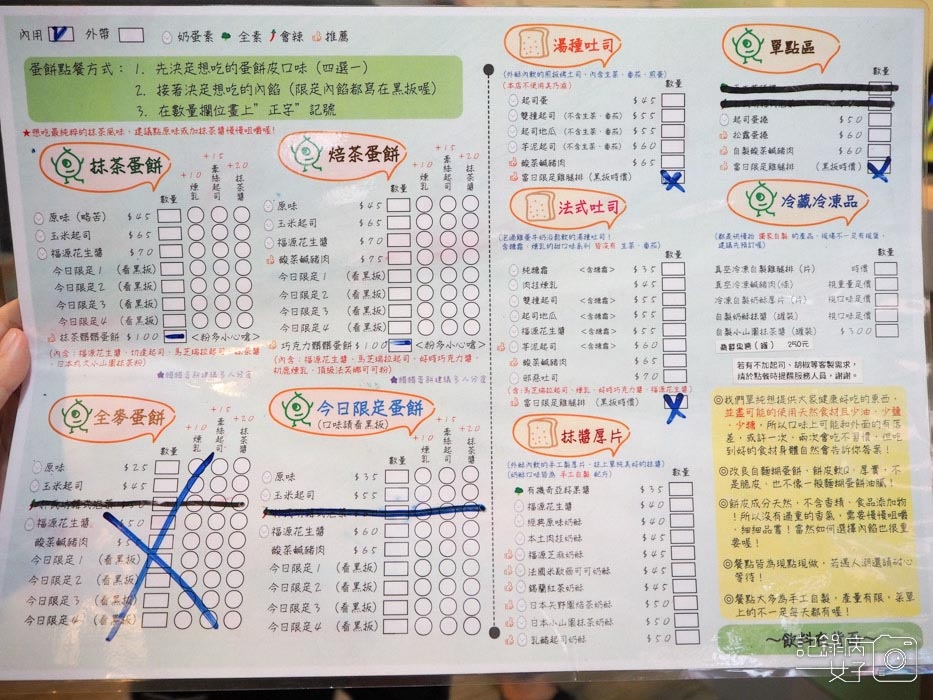 內用 外帶 奶蛋素 全素 會辣 推薦
蛋餅點餐方式：1. 先決定想吃的蛋餅皮口味（四選一）
2. 接著決定想吃的內餡（限定內餡都寫在黑板喔）
3. 在數量欄位畫上"正字"記號
★想吃最純粹的抹茶風味，建議點原味或加抹茶醬慢慢咀嚼喔！
抹茶蛋餅
數量 +10 煉乳 +15 牽絲起司 +20 抹茶醬
原味（略苦） $45
玉米起司 $65
福源花生醬 $70
今日限定1 （看黑板）
今日限定2 （看黑板）
今日限定3 （看黑板）
今日限定4 （看黑板）
抹茶髒髒蛋餅 $100 <粉多小心嗆>
日本丸久小山園抹茶粉）
★髒髒喜餅建議多人分食
焙茶蛋餅
數量 +10 煉乳 +15 牽絲起司 +20 抹茶醬
原味 $45
玉米起司 $65
福源花生醬 $70
酸菜鹹豬肉 $75
今日限定1 （看黑板）
今日限定2 （看黑板）
今日限定3 （看黑板）
今日限定4 （看黑板）
巧克力髒髒蛋餅 $100 <粉多小心嗆>
（內含：福源花生醬、切達起司、馬芝瑞拉起司、好時巧克力醬、
初鹿煉乳、頂級法芙娜可可粉）
全麥蛋餅
+10 煉乳 +15 牽絲起司 +20 抹茶醬
原味 $25
玉米起司 $45
福源花生醬 $50
酸菜鹹豬肉
今日限定1 （看黑板）
今日限定2 （看黑板）
今日限定3 （看黑板）
今日限定4 （看黑板）
今日限定蛋餅
（口味請看黑板）
數量 +10 煉乳 +15 牽絲起司 +20 抹茶醬
原味 $35
玉米起司 $55
福源花生醬 $60
酸菜鹹豬肉 $65
今日限定1 （看黑板）
今日限定2 （看黑板）
今日限定3 （看黑板）
今日限定4 （看黑板）
湯種吐司
（外酥內軟的煎板烤土司，內含生菜、番茄、煎蛋）
（本店不使用美乃滋） 數量
起司蛋 $45
雙種起司 （不含生菜、番茄） $55
起司地瓜 （不含生菜、番茄） $55
芋泥起司 （不含生菜、番茄） $60
酸菜鹹豬肉 $65
當日限定雞腿排 （黑板時價）
法式吐司
含糖霜、煉乳的甜口味系列 皆沒有 生菜、番茄） 數量
純糖霜 <含糖霜> $35
肉挂煉乳 $45
雙種起司 <含糖霜> $55
起司地瓜 <含糖霜> $55
福源花生醬 <含糖霜> $55
芋泥起司 <含糖霜> $60
酸菜鹹豬肉 $65
邪惡吐司 $70
（含:馬芝瑞拉起司、煉乳、好時巧克力醬、福源花生醬）
當日限定雞腿排 （黑板時價）
抹醬厚片
（外酥內軟的手工製厚片，抹上單純美好的抹醬）
（奶酥口味皆為 手工自製 配方） 數量
有機奇亞籽果醬 $35
福源花生醬 $40
經典原味奶酥 $40
本土肉挂奶酥 $45
福源芝麻奶酥 $45
法國米歇爾可可奶酥 $45
錫蘭紅茶奶酥 $45
日本矢野園焙茶奶酥 $50
日本小山園抹茶奶酥 $50
乳酪起司奶酥 $50
單點區
數量
起司蛋捲 $50
松露蛋捲 $60
自製酸菜鹹豬肉 $60
當日限定雞腿排 （黑板時價）
冷藏冷凍品
（都是烘焙物 獨家自製 的產品，現場不一定有現貨，
建議先預訂喔） 數量
真空冷凍自製雞腿排（片） 時價
真空冷凍鹹豬肉(條) 視重量定價
冷凍自製奶酥厚片（片） 視口味定價
自製奶酥抹醬（罐裝） 視口味定價
自製小山園抹茶醬（罐裝） $300
250元
若有不加起司、胡椒等客製需求，
請於點餐時提醒服務人員，謝謝。
◎我們單純想提供大家健康好吃的東西，
並盡可能的使用天然食材且少油、少鹽
、少糖，所以口味上可能和外面的有落
差，或許一次、兩次會吃不習慣，但吃
到好的食材身體自然會告訴你答案！
◎改良自麵糊蛋餅，餅皮軟Q、厚實，不
是脆皮，也不像一般麵糊蛋餅油膩！
◎餅皮成分天然，不含香精、食品添加物
！所以沒有過重的香氣，需要慢慢咀嚼
、細細品嘗！當然如何選擇內餡也很重
要喔！
◎餐點皆為現點現做，若遇人潮還請耐心
等待！
◎餐點大多為手工自製，產量有限，菜單
上的不一定每天都有喔！
～飲料在背面～